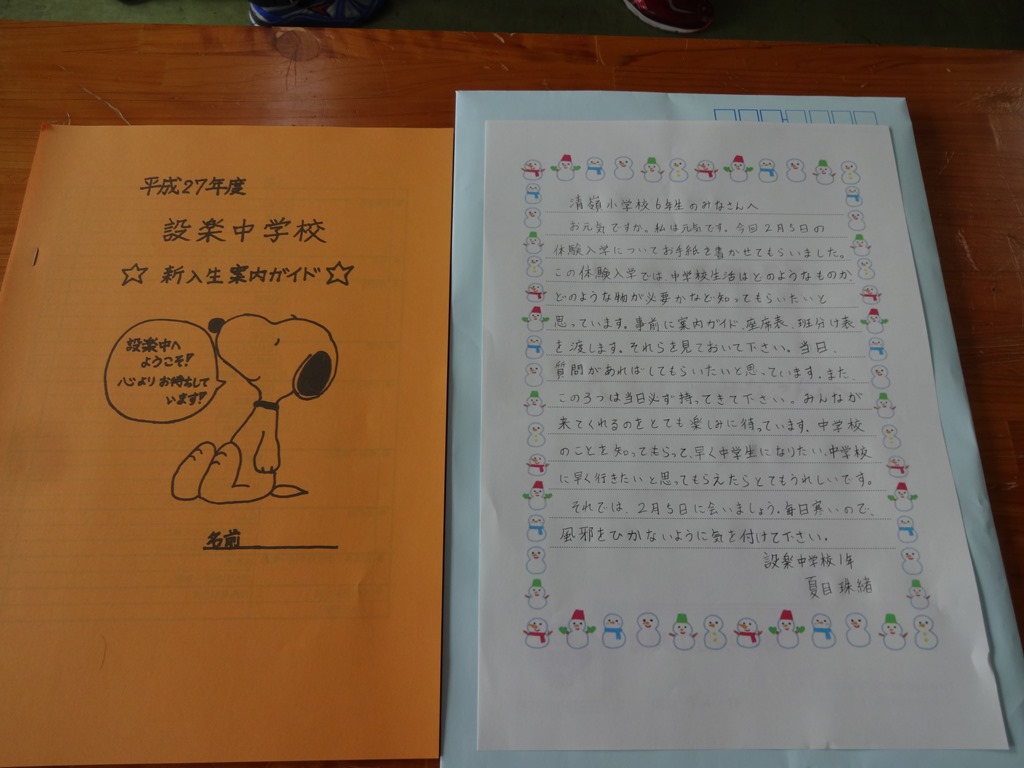 平成27年度
設楽中学校
☆ 新入生案内ガイド ☆
設楽中へ
ようこそ!
心よりお待ちして
います!!
名前
清嶺小学校6年生のみなさんへ
お元気ですか。私は元気です。今回2月5日の
体験入学についてお手紙を書かせてもらいました。
この体験入学では、中学校生活はどのようなものか、
どのような物が必要かなど知ってもらいたいと
思っています。事前に案内ガイド、座席表、班分け表
を渡します。それらを見ておいて下さい。当日、
質問があればしてもらいたいと思っています。また、
この3つは当日必ず持ってきて下さい。みんなが
来てくれるのをとても楽しみに待っています。中学校
のことを知ってもらって、早く中学生になりたい、中学校
に早く行きたいと思ってもらえたらとてもうれしいです。
それでは、2月5日に会いましょう。毎日寒いので、
風邪をひかないように気を付けて下さい。
設楽中学校1年
夏目 珠緒